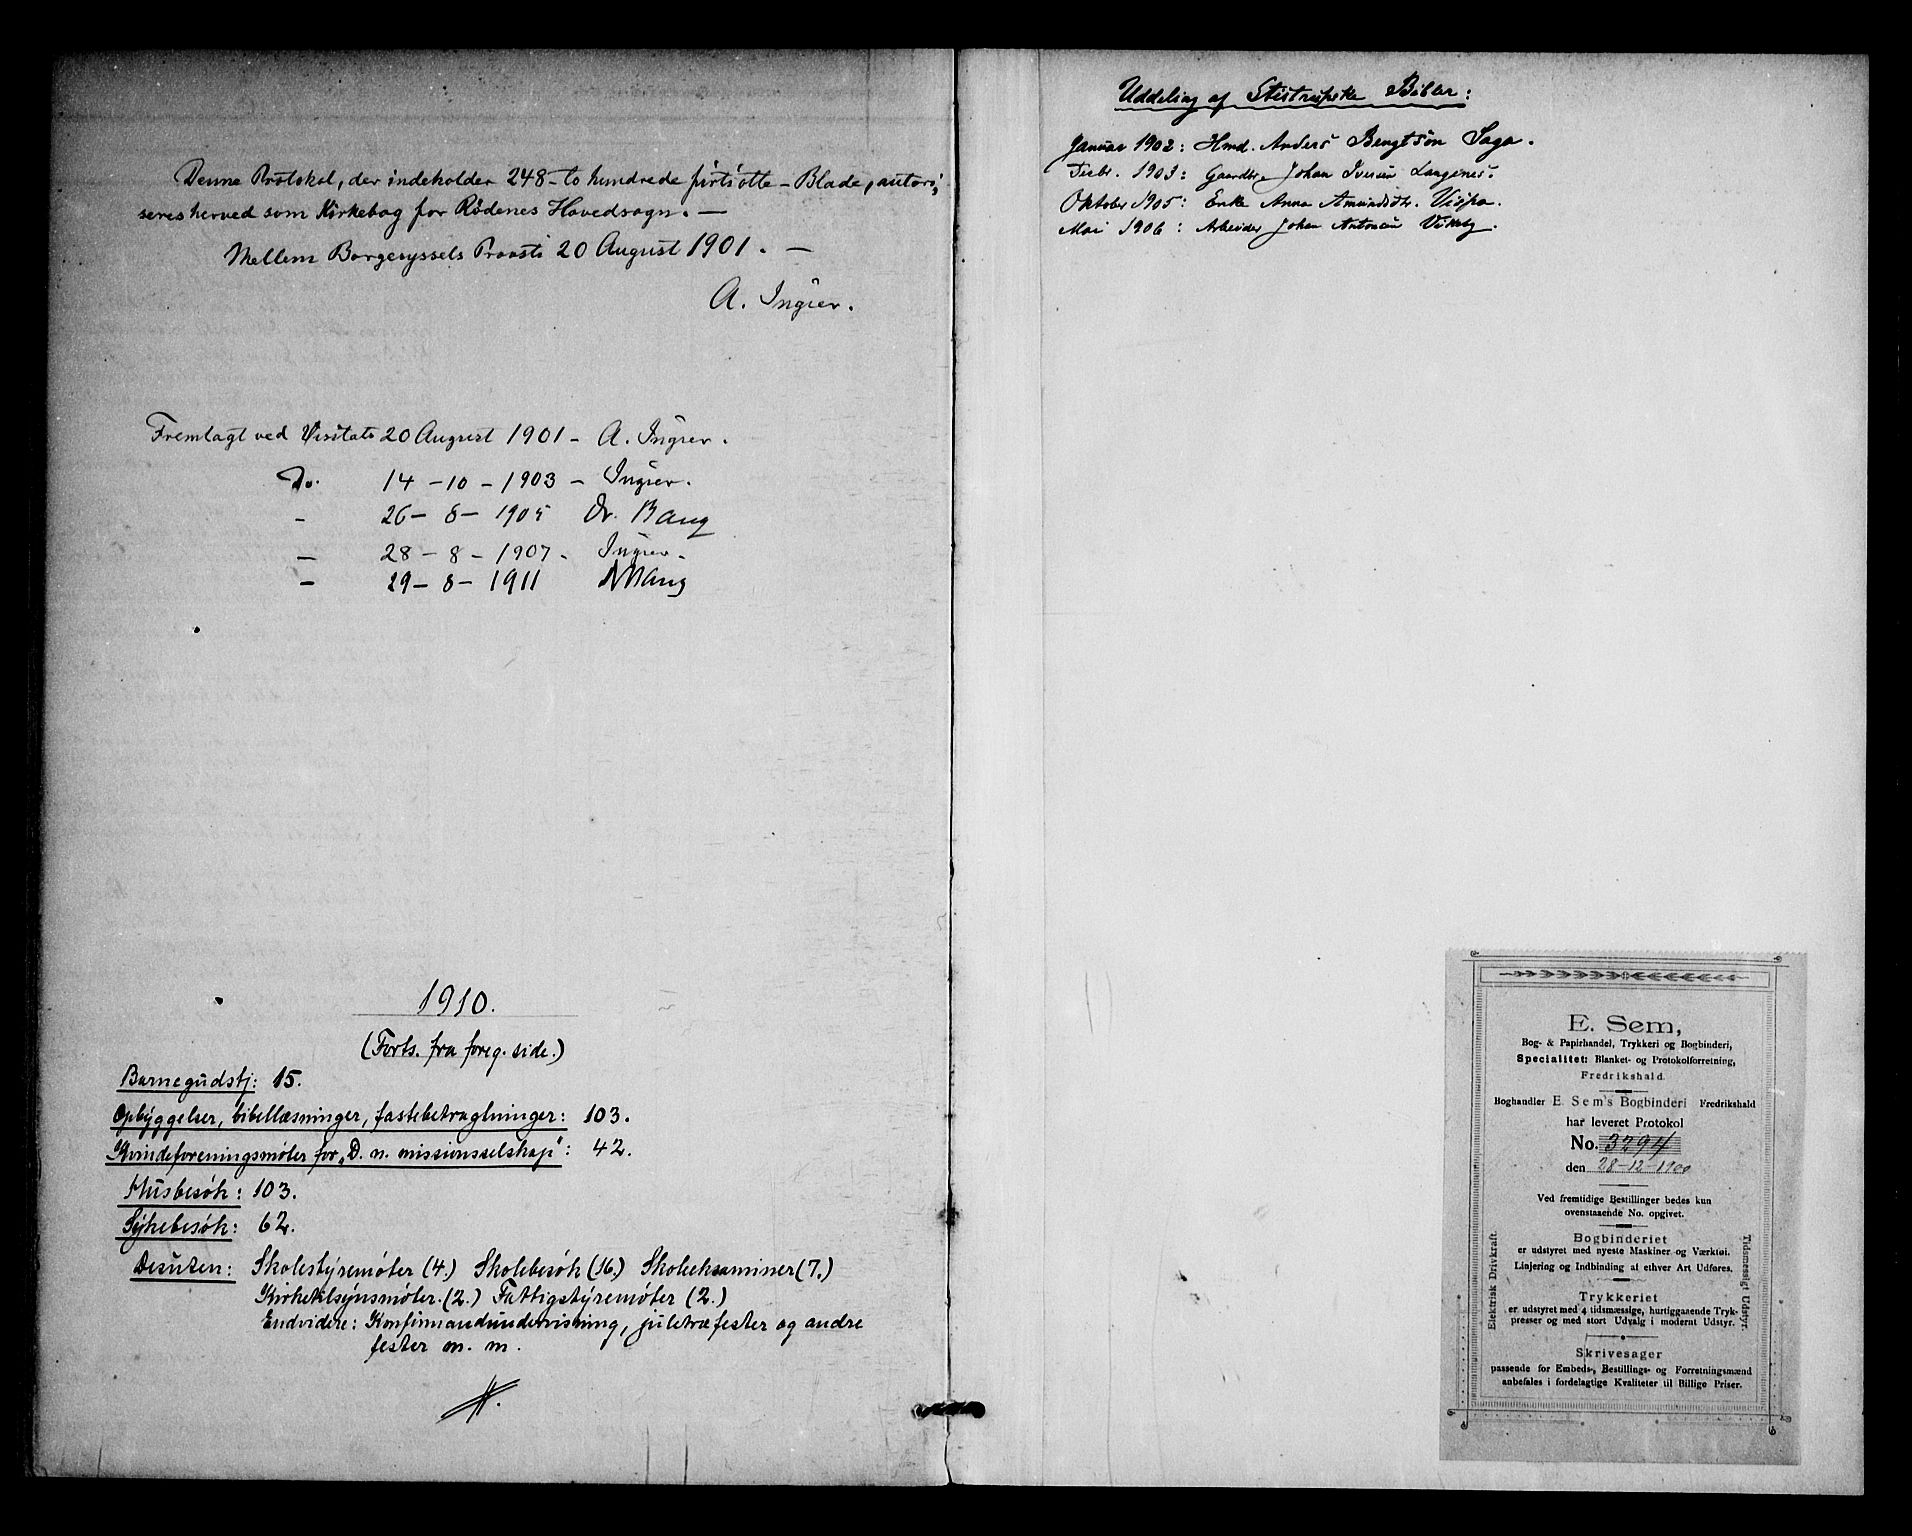 Denne Protokol, der indeholder 248 - to hundrede førtiotte - Blade, autori-
seres herved som Kirkebog for Rødenes Hovedsogn. -
Mellem Borgesyssels Provsti 20 August 1901. -
A. Ingier.
Fremlagt ved Visitats 20 August 1901 - A. Ingier.
Do. 14 - 10 - 1903 - Ingier.
- 26 - 8 - 1905 Dr. Bang
- 28 - 8 - 1907 - Ingier.
- 29 - 8 - 1911 Bang
1910.
(Forts. fra foreg. side.)
Barnegudstj: 15.
Opbyggelser, bibellæsninger, fastebetragtninger: 103.
Kvindeforeningsmøter for „D. n. missionsselskap": 42.
Husbesøk: 103.
Sykebesøk: 62.
Desuten: Skolestyremøter (4.) Skolebesøk (16.) Skoleeksaminer (7.)
Kirketilsynsmøter. (2.) Fattigstyremøter (2.)
Endvidere: Konfirmandundervisning, juletræfester og andre
fester m. m.
Uddeling af Stistrupske Bibler:
Januar 1902: Hmd. Anders Bengtsøn Saga.
Febr. 1903: Gaardbr. Johan Iversen Langenes.
Oktober 1905: Enke Anna Amundsdtr. Vispa.
Mai 1906: Arbeider Johan Antonsen Vikeby.
E. Sem,
Bog- & Papirhandel, Trykkeri og Bogbinderi,
Specialitet: Blanket- og Protokolforretning,
Fredrikshald.
Boghandler E. Sem's Bogbinderi Fredrikshald
har leveret Protokol
No. 3294
den 28-12-1900
Ved fremtidige Bestillinger bedes kun
ovenstaaende No. opgivet.
Bogbinderiet
er udstyret med nyeste Maskiner og Værktøi.
Linjering og Indbinding af ethver Art Udføres.
Trykkeriet
er udstyret med 4 tidsmæssige, hurtiggaaende Tryk-
presser og med stort Udvalg i modernt Udstyr.
Skrivesager
passende for Embeds-, Bestillings- og Forretningsmænd
anbefales i fordelagtige Kvaliteter til Billige Priser.
Elektrisk Drivkraft.
Tidsmessigt Udstyr.